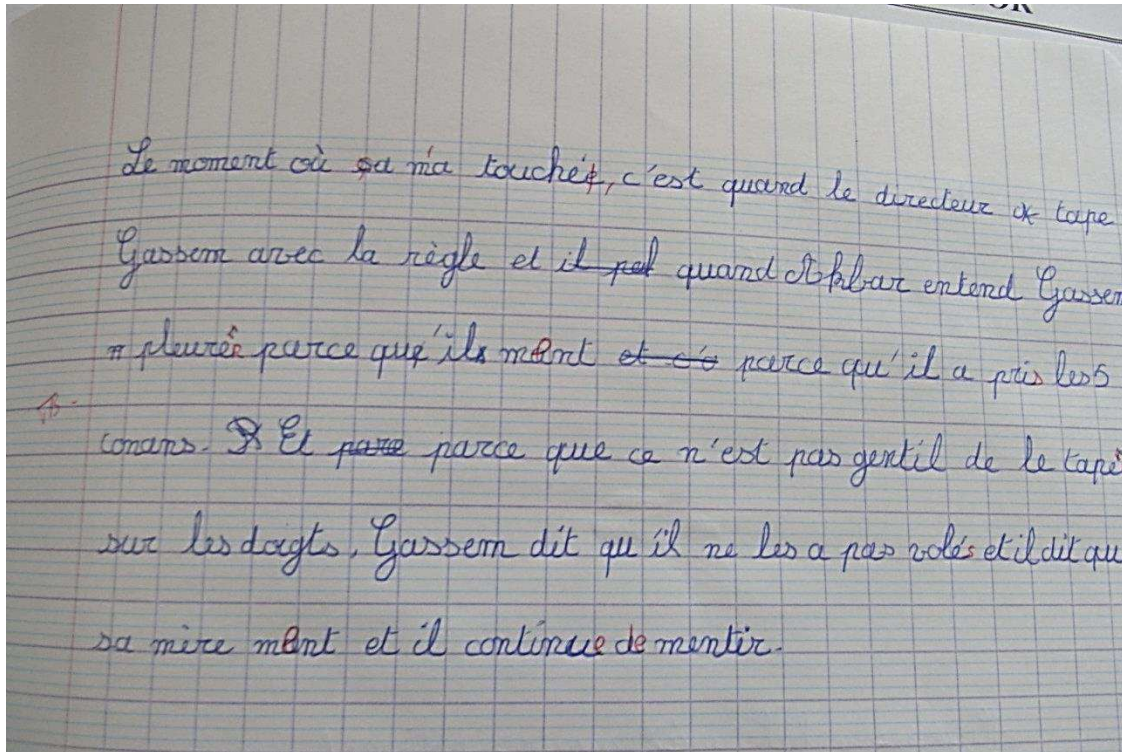 OR
Le moment où ça m'a touché, c'est quand le directeur tape
Gassem avec la règle et il quand Akbar entend Gassem
pleurer parce qu'il ment et parce qu'il a pris les 5
tomans. Et parce que ce n'est pas gentil de le tapé
sur les dogts, Gassem dit qu'il ne les a pas volés et il dit qu
sa mère ment et il continue de mentir.